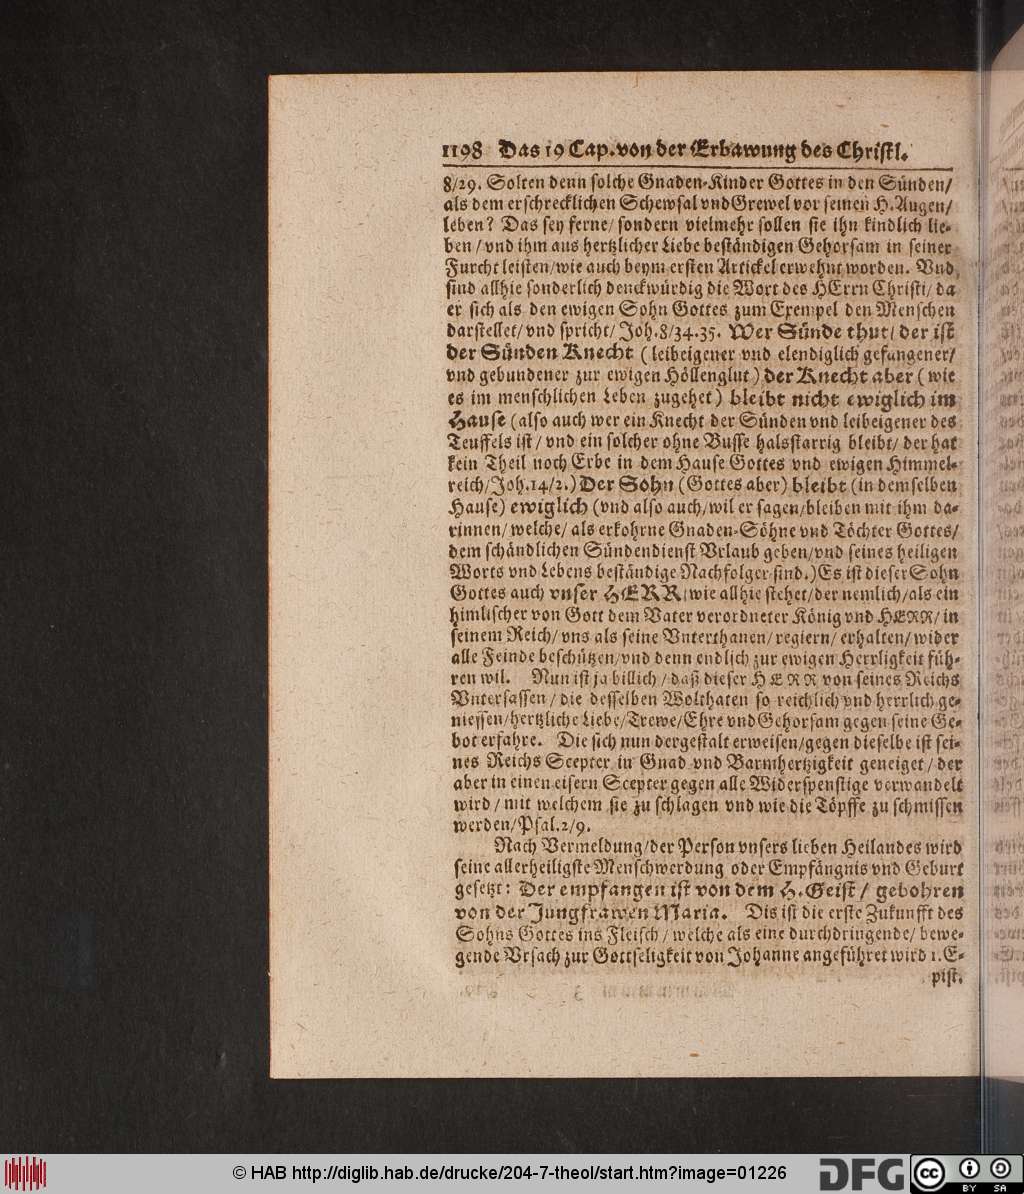 1198 Das 19 Cap. von der Erbawung des Christl.
8/29. Solten denn solche Gnaden-Kinder Gottes in den Sünden/
als dem erschrecklichen Schewsal vnd Grewel vor seinen H. Augen/
leben? Das sey ferne/ sondern vielmehr sollen sie ihn kindlich lie-
ben/ vnd ihm aus hertzlicher Liebe beständigen Gehorsam in seiner
Furcht leisten/ wie auch beym ersten Artickel erwehnt worden. Vnd
sind allhie sonderlich denckwürdig die Wort des HErrn Christi/ da
er sich als den ewigen Sohn Gottes zum Exempel den Menschen
darstellet/ vnd spricht/ Joh. 8/34.35. Wer Sünde thut/ der ist
der Sünden Knecht (leibeigener vnd elendiglich gefangener/
vnd gebundener zur ewigen Höllenglut) der Knecht aber (wie
es im menschlichen Leben zugehet) bleibt nicht ewiglich im
Hause (also auch wer ein Knecht der Sünden vnd leibeigener des
Teuffels ist/ vnd ein solcher ohne Busse halsstarrig bleibt/ der hat
kein Theil noch Erbe in dem Hause Gottes vnd ewigen Himmel-
reich/ Joh. 14/2.) Der Sohn (Gottes aber) bleibt (in demselben
Hause) ewiglich (vnd also auch/ wil er sagen/ bleiben mit ihm da-
rinnen/ welche/ als erkohrne Gnaden-Söhne vnd Töchter Gottes/
dem schändlichen Sündendienst Vrlaub geben/ vnd seines heiligen
Worts vnd Lebens beständige Nachfolger sind.) Es ist dieser Sohn
Gottes auch vnser HERR/ wie allhie stehet/ der nemlich/ als ein
himlischer von Gott dem Vater verordneter König vnd HERR/ in
seinem Reich/ vns als seine Vnterthanen/ regiern/ erhalten/ wider
alle Feinde beschützen/ vnd denn endlich zur ewigen Herrligkeit füh-
ren wil. Nun ist ja billich/ daß dieser HERR von seines Reichs
Vntersassen/ die desselben Wolthaten so reichlich vnd herrlich ge-
niessen/ hertzliche Liebe/ Trewe/ Ehre vnd Gehorsam gegen seine Ge-
bot erfahre. Die sich nun dergestalt erweisen/ gegen dieselbe ist sei-
nes Reichs Scepter in Gnad vnd Barmhertzigkeit geneiget/ der
aber in einen eisern Scepter gegen alle Widerspenstige verwandelt
wird/ mit welchem sie zu schlagen vnd wie die Töpffe zu schmissen
werden/ Psal. 2/9.
Nach Vermeldung/ der Person vnsers lieben Heilandes wird
seine allerheiligste Menschwerdung oder Empfängnis vnd Geburt
gesetzt: Der empfangen ist von dem H. Geist/ gebohren
von der Jungfrawen Maria. Dis ist die erste Zukunfft des
Sohns Gottes ins Fleisch/ welche als eine durchdringende/ bewe-
gende Vrsach zur Gottseligkeit von Johanne angeführet wird 1. E-
pist.
© HAB http://diglib.hab.de/drucke/204-7-theol/start.htm?image=01226
DFG
cc
BY SA